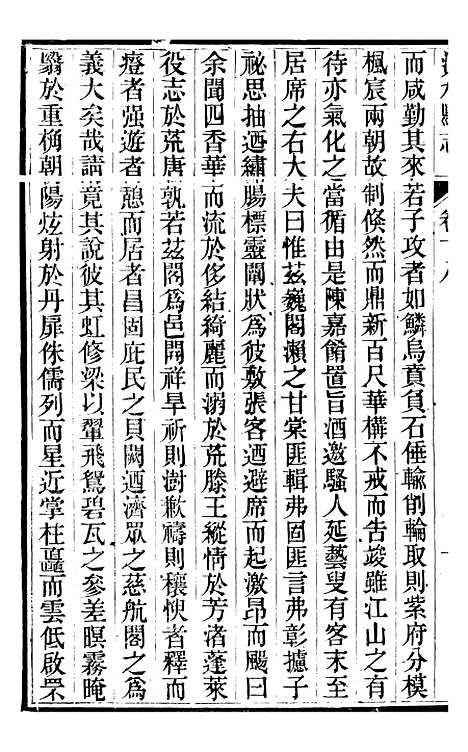 卷十八
而咸勤其來若子攻者如鱗烏賁負石倕輸削輪取則紫府分模
楓宸兩朝故制倏然而鼎新百尺華構不戒而吿竣雖江山之有
待亦氣化之當循由是陳嘉餚置旨酒邀騷人延藝叟有客末至
居席之右大夫曰惟茲巍閣瀨之甘棠匪輯弗固匪言弗彰攄子
祕思抽迺繡腸標靈闡狀爲彼敷張客迺避席而起激昂而颺曰
余聞四香華而流於侈結綺麗而溺於荒滕王縱情於芳渚蓬萊
役志於荒唐孰若茲閣爲邑開祥旱祈則澍歉禱則穰懊者釋而
瘞者强遊者憩而居者昌固庇民之貝闕迺濟眾之慈航閣之爲
義大矣哉請竟其說彼其虹修梁以翬飛鴛碧瓦之參差暝霧晻
翳於重桷朝陽炫射於丹扉侏儒列而星近掌柱矗而雲低啟罘